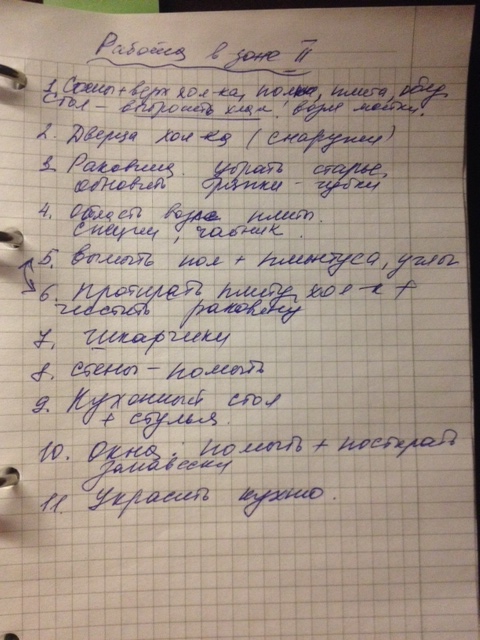 Работа в зоне II
1. + верх хол-ка, полка, плита, обед.
Стол – выбросить хлам! возле мойки.
2. Дверца хол-ка (снаружи)
3. Раковина. убрать старые,
обновить тряпки – губки
4. Область возле плиты.
Специи, чайник.
5. Вымыть пол + плинтуса, углы
6. Протирать плиту, хол-к +
чистить раковину
7. Шкафчики
8. Стены – помыть
9. Кухонный стол
+ стулья.
10. Окна: помыть + постирать
занавески
11. Украсить кухню.